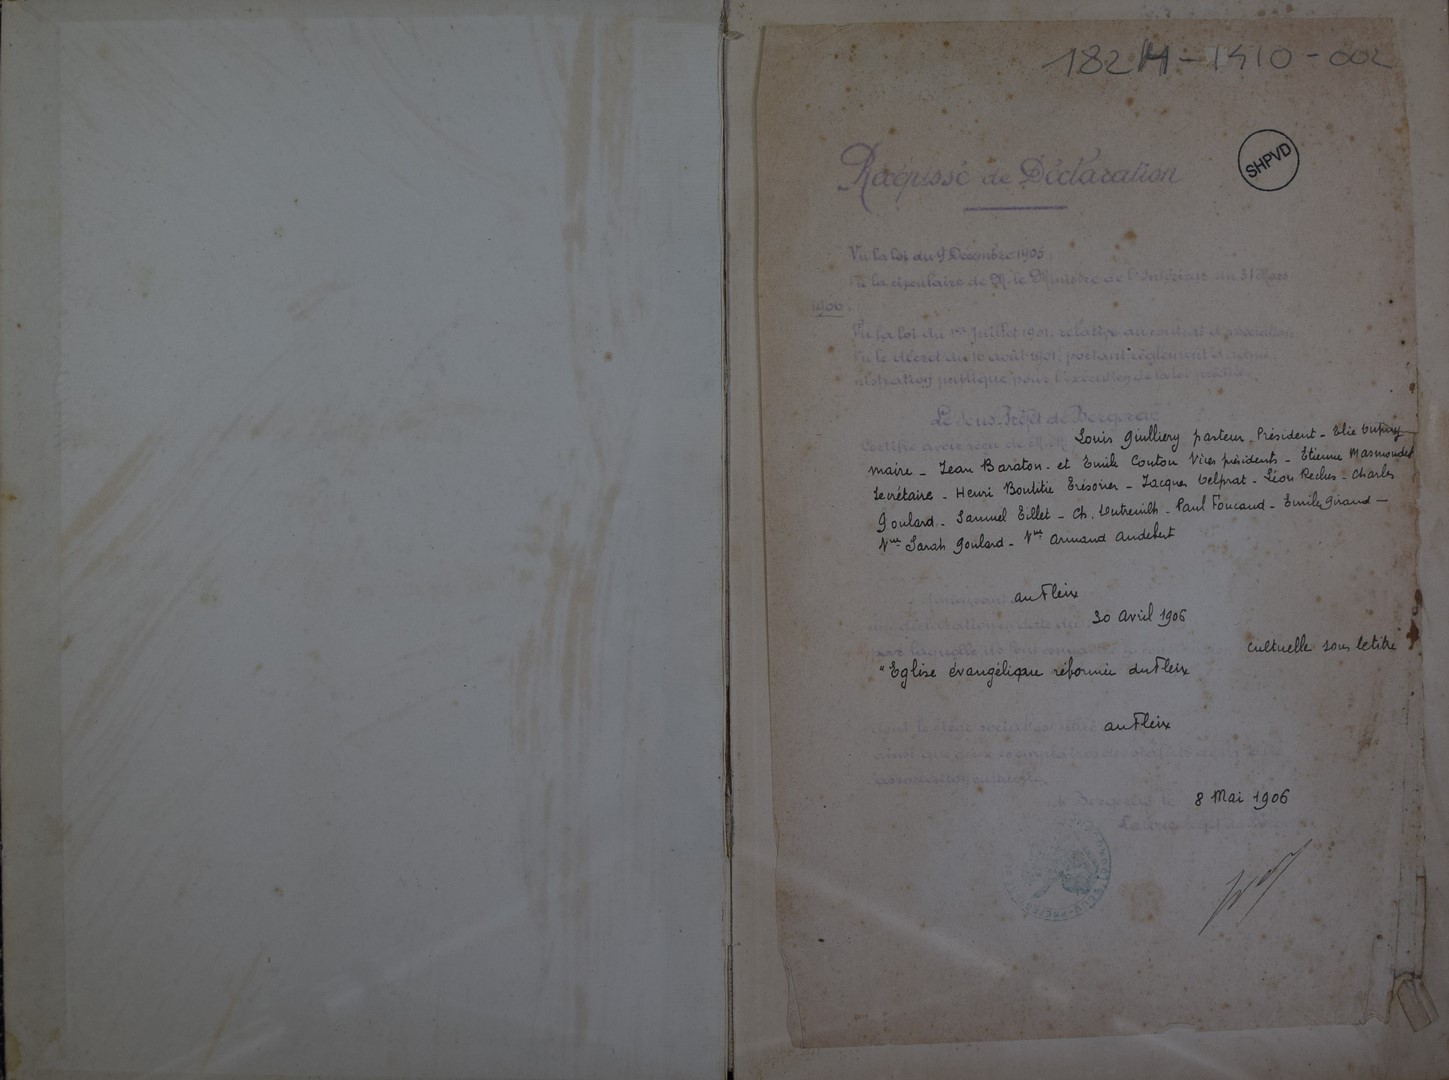 182H-1410-002
SHPVD
Récépissé de Déclaration
Vu la loi du 9 Décembre 1905,
Vu la circulaire de M. le Ministre de l'Intérieur du 31 Mars
1906,
Vu la loi du 1er Juillet 1901, relative au contrat d'association
Vu le décret du 16 août 1901, portant règlement d'admi
nistration publique pour l'exécution de la loi
Le Sous-Préfet de Bergerac
Certifie avoir reçu de M.M. Louis Guilliery pasteur Président - Elie
maire - Jean Baraton - et Emile Couton Vices présidents - Etienne
Secrétaire - Henri Trésorier - Jacques Delprat - Léon Reclus - Charles
Goulard - Samuel Eillet - Ch. Dutreuilh - Paul Foucaud - Emile Giraud -
Vve Sarah Goulard - Vve Armand Audebert
au Fleix
déclaration en date du 30 Avril 1906
par laquelle ils font connaître cultuelle sous le titre
"Eglise évangélique réformée du Fleix
dont le siège social est au Fleix
ainsi que deux exemplaires des statuts de
association
Bergerac le 8 Mai 1906